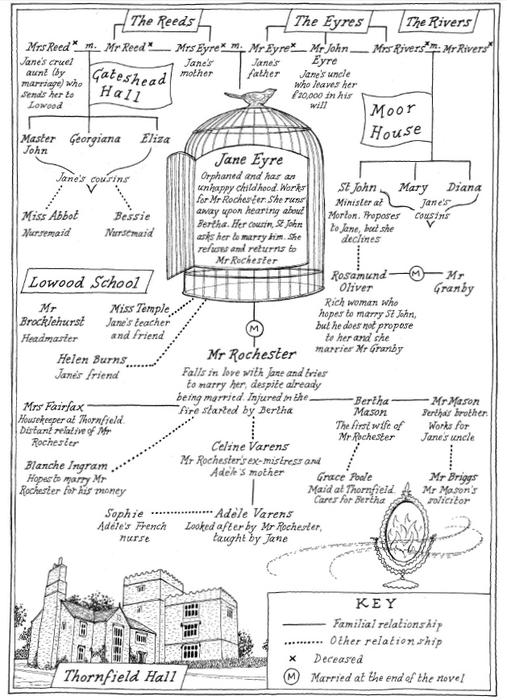 The Reeds
The Eyres
The Rivers
Mrs Reed× m. Mr Reed× Mrs Eyre× m. Mr Eyre× Mr John Eyre Mrs Rivers× m. Mr Rivers×
Jane's cruel
aunt (by
marriage) who
sends her to
Lowood
Jane's
mother
Jane's
father
Jane's uncle
who leaves her
£20,000 in his
will
Gateshead
Hall
Moor
House
Master
John
Georgiana
Eliza
Jane's cousins
Miss Abbot
Nursemaid
Bessie
Nursemaid
Jane Eyre
Orphaned and has an
unhappy childhood. Works
for Mr Rochester. She runs
away upon hearing about
Bertha. Her cousin, St John
asks her to marry him. She
refuses and returns to
Mr Rochester
St John
Minister at
Morton. Proposes
to Jane, but she
declines
Mary
Diana
Jane's
cousins
Rosamund
Oliver
M
Mr
Granby
Rich woman who
hopes to marry St John,
but he does not propose
to her and she
marries Mr Granby
Lowood School
Mr
Brocklehurst
Headmaster
Miss Temple
Jane's teacher
and friend
Helen Burns
Jane's friend
M
Mr Rochester
Falls in love with Jane and tries
to marry her, despite already
being married. Injured in the
fire started by Bertha
Mrs Fairfax
Housekeeper at Thornfield.
Distant relative of Mr
Rochester
Bertha
Mason
The first wife of
Mr Rochester
Mr Mason
Bertha's brother.
Works for
Jane's uncle
Blanche Ingram
Hopes to marry Mr
Rochester for his money
Celine Varens
Mr Rochester's ex-mistress and
Adèle's mother
Grace Poole
Maid at Thornfield.
Cares for Bertha
Mr Briggs
Mr Mason's
solicitor
Sophie
Adèle's French
nurse
Adèle Varens
Looked after by Mr Rochester,
taught by Jane
Thornfield Hall
KEY
Familial relationship
Other relationship
× Deceased
M Married at the end of the novel